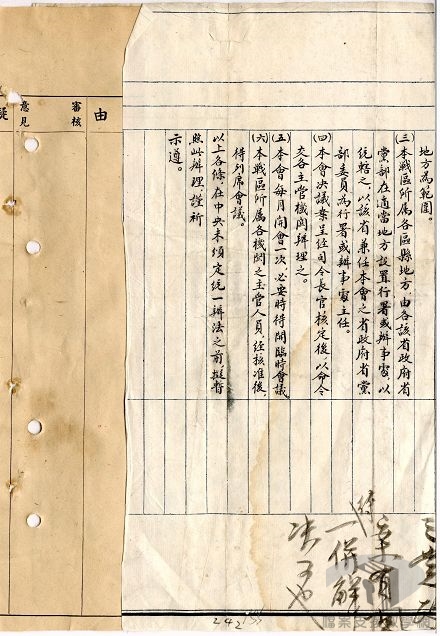 地方為範圍。
(三)本戰區所屬各區縣地方，由各該省政府省
黨部在適當地方設置行署或辦事處，以
統轄之，以該省兼任本會之省政府省黨
部委員為行署或辦事處主任。
(四)本會決議案呈經司令長官核定後，以命令
交各主管機關辦理之。
(五)本會每月開會一次，必要時得開臨時會議
(六)本戰區所屬各機關之主管人員，經核准後
得列席會議。
以上各條在中央未頒定統一辦法之前擬暫
照此辦理，謹祈
示遵。
一併解
決可也
由
審核
意見
242